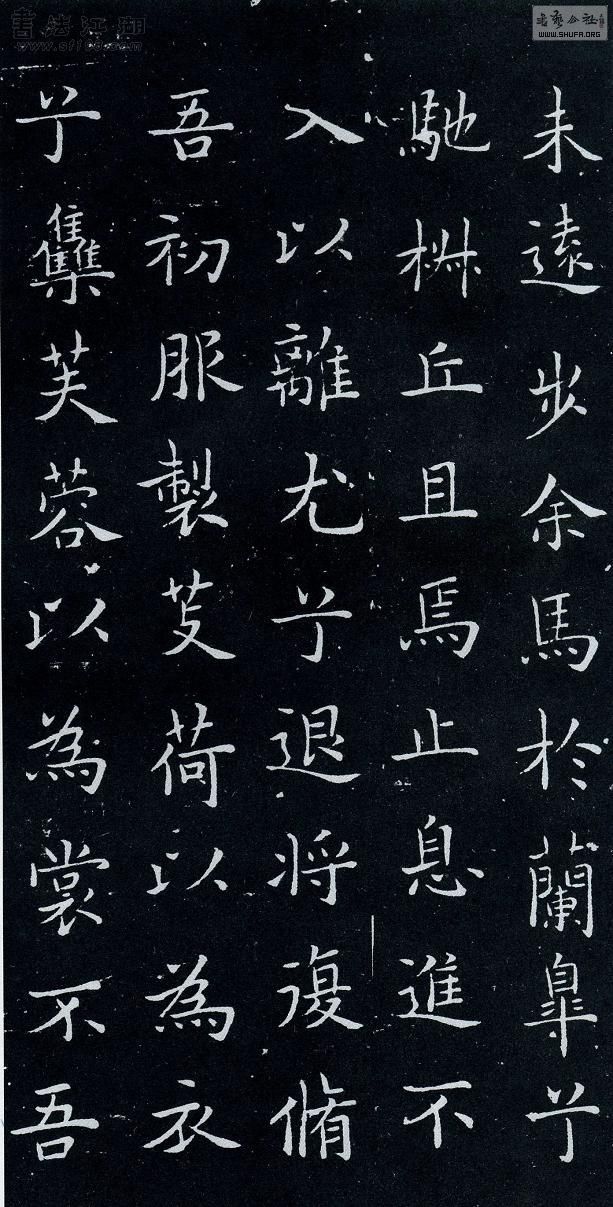 書法江湖
www.sf108.com
書藝公社
WWW.SHUFA.ORG
未遠步余馬於蘭皐兮
馳椒丘且焉止息進不
入以離尤兮退将復脩
吾初服製芰荷以為衣
兮雧芙蓉以為裳不吾